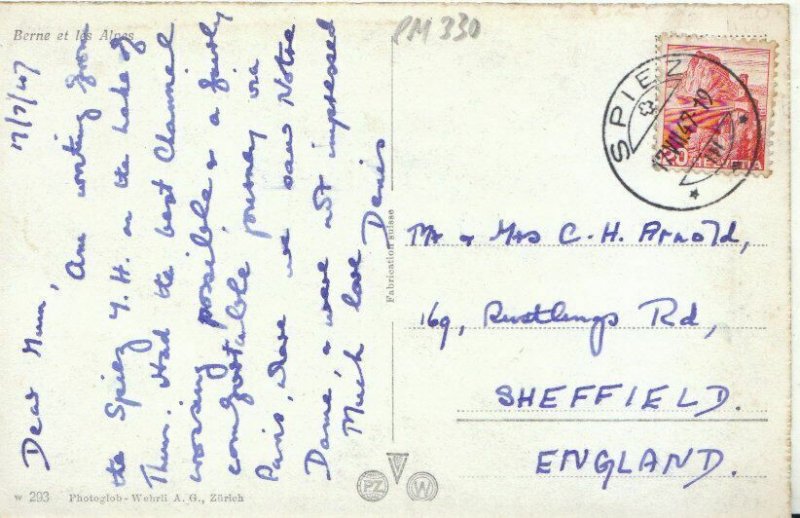 Berne et les Alpes
PM 330
17/7/47
Dear Mum,
Am writing from
the Spiez Y.H. on the Lake of
Thun. Had the best Channel
crossing possible & a fairly
comfortable journey via
Paris, where we saw Notre
Dame, & were not impressed
Much love Denis
Fabrication suisse
SPIEZ
17.VII.47-19
20 HELVETIA
Mr & Mrs C. H. Arnold,
169, Rustlings Rd,
SHEFFIELD.
ENGLAND.
W 293 Photoglob-Wehrli A. G., Zürich
PZ W